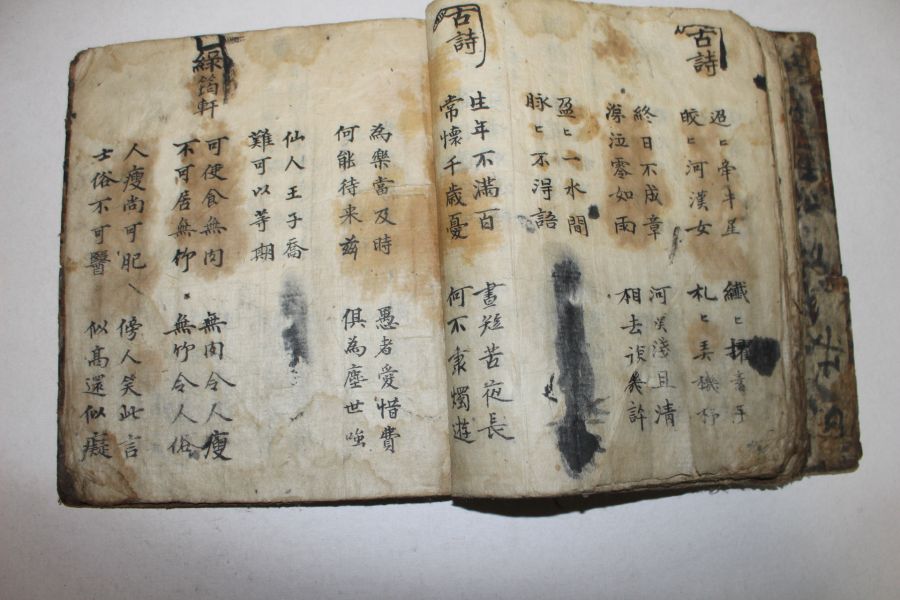 古詩
迢ヒ牽牛星
皎ヒ河漢女
纖ヒ擢素手
札ヒ弄機杼
終日不成章
涕泣零如雨
河漢淺且清
相去復幾許
盈ヒ一水間
脉ヒ不得語
古詩
生年不滿百
常懷千歲憂
晝短苦夜長
何不秉燭遊
為樂當及時
何能待来兹
愚者愛惜費
俱為塵世嗤
仙人王子喬
難可以等期
綠筠軒
可使食無肉
不可居無竹
無肉令人瘦
無竹令人俗
人瘦尚可肥
士俗不可醫
傍人笑此言
似高還似癡